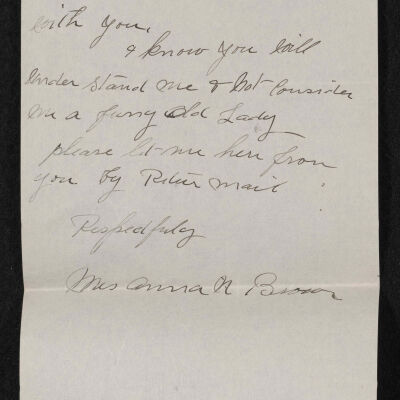 with you,
& know you will
under stand me & not consider
me a fussy old Lady
please let me here from
you by Retur mail
Respectfuly
Mrs Anna N Brown